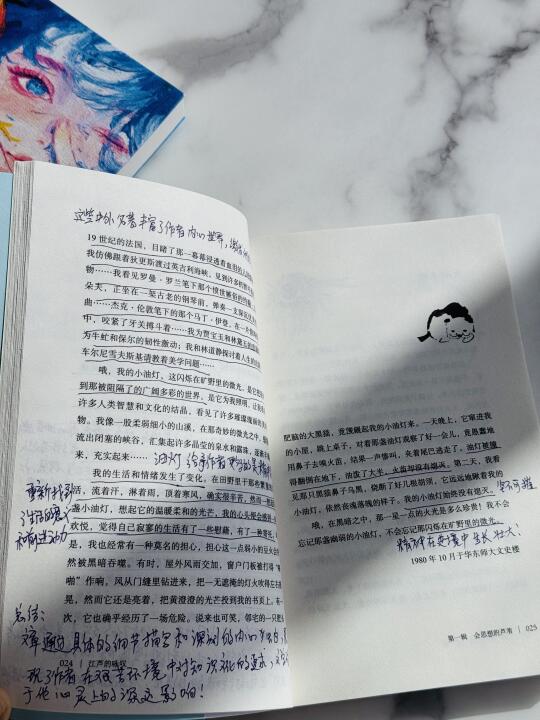 这些中外名著丰富了作者内心世界,
19 世纪的法国，目睹了那一幕幕浸透着血泪的
我仿佛跟着狄更斯渡过英吉利海峡，见到许多
物……我看见罗曼·罗兰笔下那个愤世嫉俗的
朵夫，正坐在一架古老的钢琴前，弹奏一支
曲……杰克·伦敦笔下的那个马丁·伊登，在
中，咬紧了牙关搏斗着……我为贾宝玉和林黛玉的
为牛虻和保尔的韧性激动；我和林道静探讨着人生
车尔尼雪夫斯基请教着美学问题……
哦，我的小油灯，这闪烁在旷野里的微光，是它
到那被阻隔了的广阔多彩的世界，是它为我照明，
许多人类智慧和文化的结晶，看见了许多璀璨
物。我像一股柔弱细小的山溪，在那奇妙的微光之中，
流出闭塞的峡谷，汇集起许多晶莹的泉水和露珠，逐
来，充实起来……
油灯给予作者
我的生活和情绪发生了变化。在田野里干那些繁重的
活，流着汗，淋着雨，顶着寒风，确实很辛苦，然而
灯，想起它的温暖柔和的光芒，我的心头便会
欢悦，觉得自己寂寥的生活有了一些慰藉，有了一种
重新找到
生活的意义
和前进动力
是，我也经常有一种莫名的担心，担心这一点弱小的豆火
然被黑暗吞噬。有时，屋外风雨交加，窗户门板被打得“
啪”作响，风从门缝里钻进来，把一无遮掩的灯火吹得左右
晃，然而它还是亮着，把黄澄澄的光芒投到我的书页上。有一
次，它也确乎经历了一场危险。说来也可笑，邻宅的一只
总结:
文章通过具体的细节描写和深刻的内心
现了作者在艰苦环境中对知识文化的追求,
于他心灵上的深远影响!
024 江芦的咏叹
肥脑的大黑猫，竟觊觎起我的小油灯来。一天晚上，它窜进我
的小屋，跳上桌子，对着那盏油灯观察了好一会儿，竟愚蠢地
用鼻子去嗅火苗，结果一声惨叫，夹着尾巴逃走了，油灯被撞
得翻倒在地下，油泼了大半，火苗却没有熄灭。第二天，我看
见那只黑猫鼻子乌黑，烧掉了好几根胡须，它远远地瞅着我的
小油灯，依然丧魂落魄的样子。我的小油灯始终没有熄灭。
坚不可摧
哦，在黑暗之中，那一星一点的火光是多么珍贵！我不会
忘记那盏幽弱的小油灯，不会忘记那闪烁在旷野里的微光。
精神在逆境中生长壮大!
1980 年 10 月于华东师大文史楼
第一辑 会思想的芦苇 025